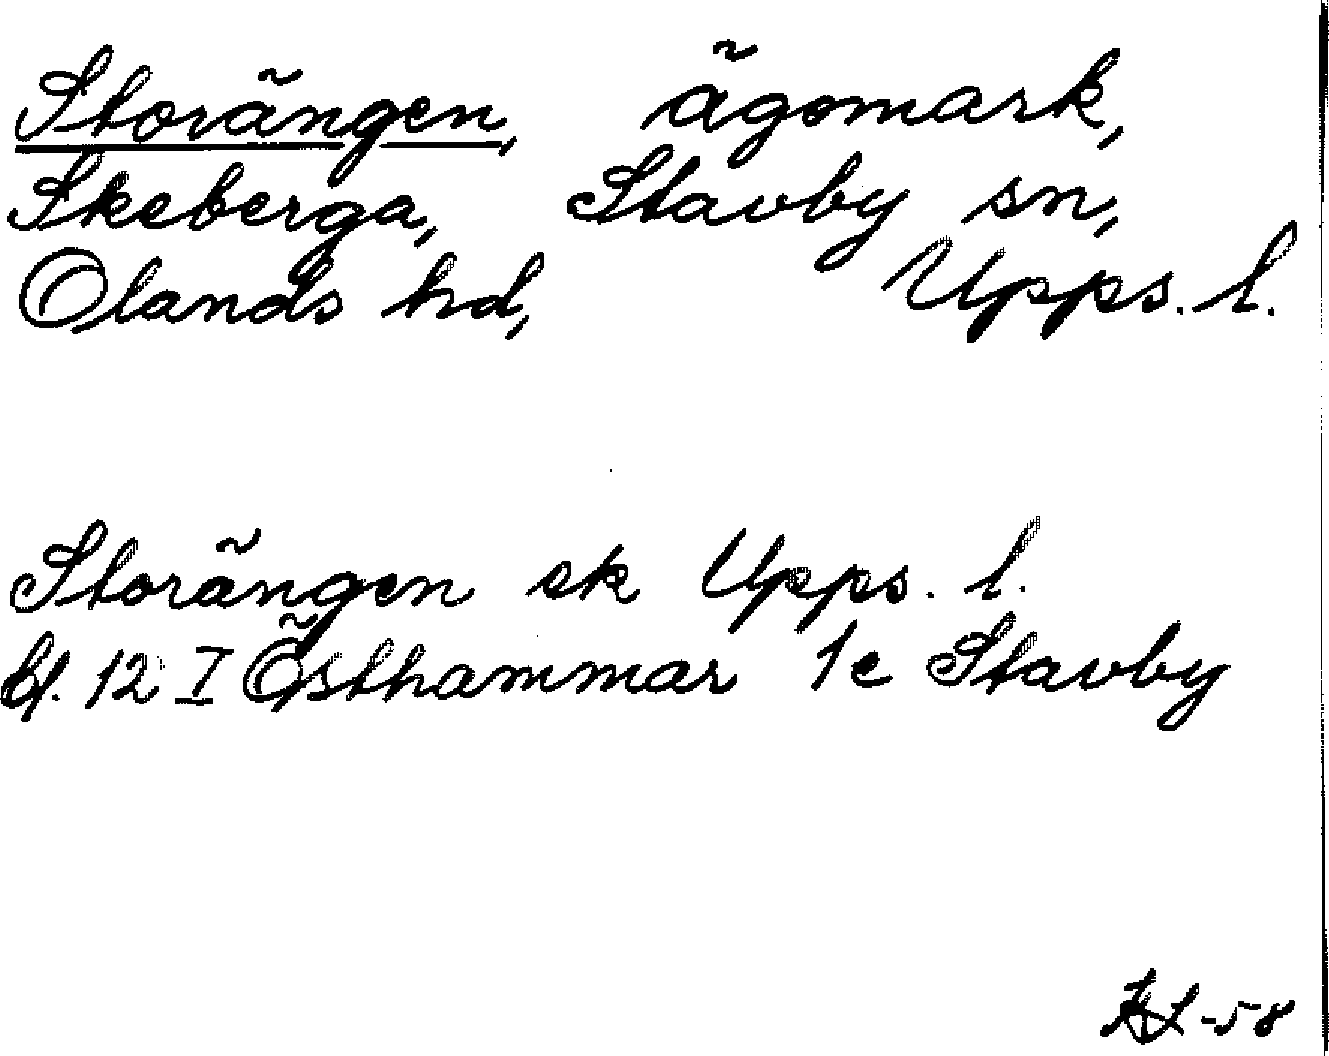 Storängen, ägomark,
Skeberga, Stavby sn,
Olands hd, Upps. l.
Storängen ek Upps. l.
bl. 12 I Östhammar 1e Stavby
-58